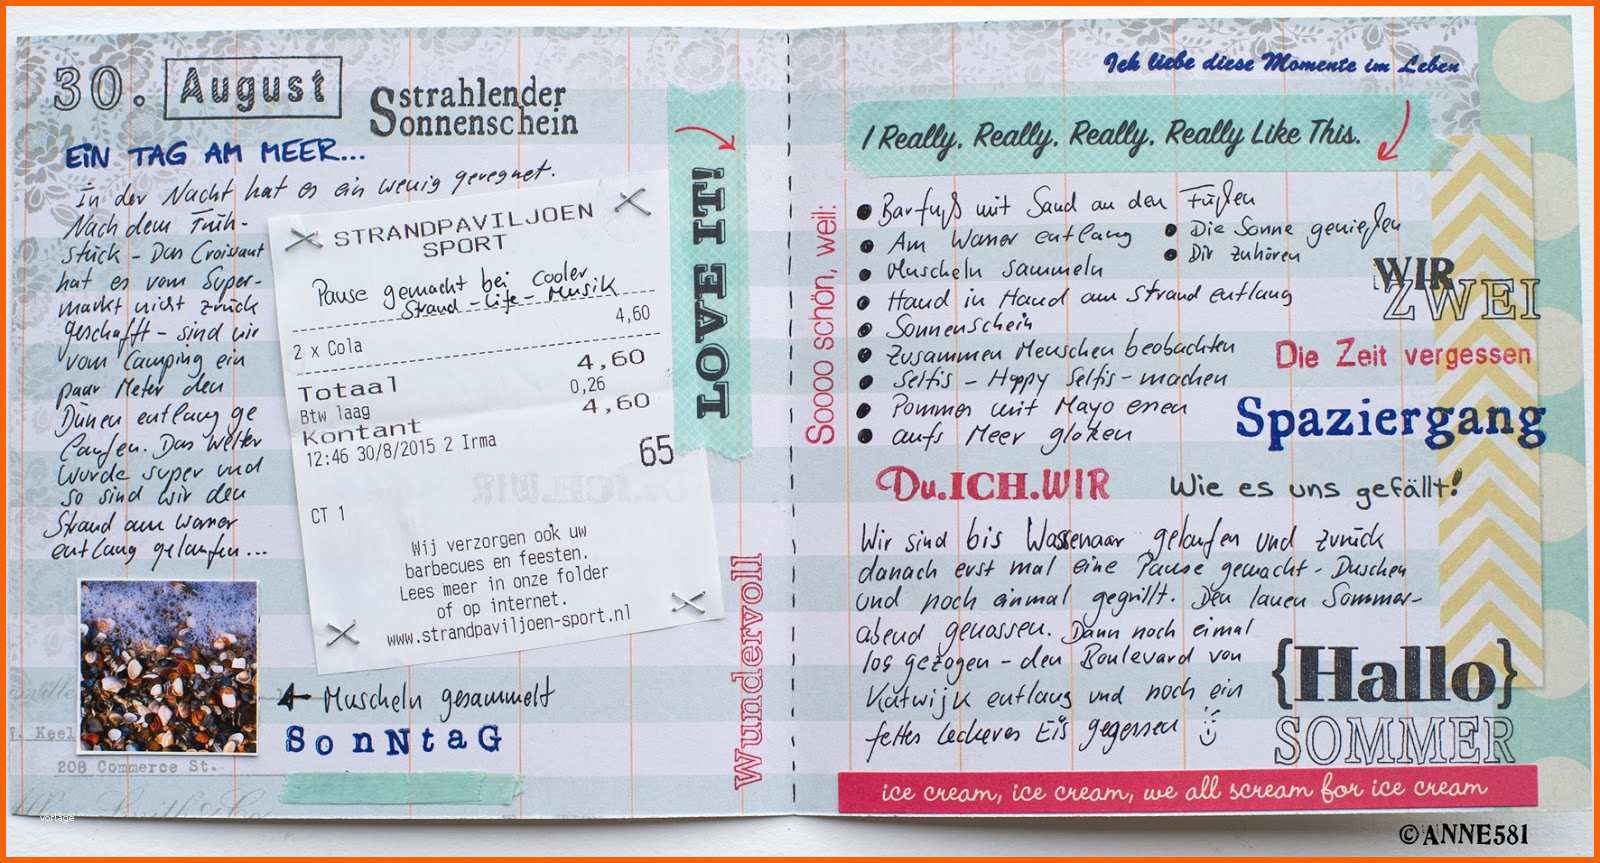 30. August
strahlender
Sonnenschein
EIN TAG AM MEER...
In der Nacht hat es ein wenig geregnet.
Nach dem Früh-
stück - Das Croissant
hat es vom Super-
markt nicht zurück
geschafft - sind wir
vom Camping ein
paar Meter den
Dünen entlang ge
laufen. Das Wetter
wurde super und
so sind wir den
Strand am Wasser
entlang gelaufen...
STRANDPAVILJOEN
SPORT
Pause gemacht bei cooler
Strand-Life-Musik
4,60
2 x Cola
Totaal 4,60
Btw laag 0,26
Kontant 4,60
12:46 30/8/2015 2 Irma 65
CT 1
Wij verzorgen ook uw
barbecues en feesten.
Lees meer in onze folder
of op internet.
www.strandpaviljoen-sport.nl
LOVE IT!
wundervoll
Muscheln gesammelt
SonNtaG
Keel
208 Commerce St.
Smith & Co
vorlage
Ich liebe diese Momente im Leben
I Really, Really, Really, Really Like This.
Soooo schön, weil:
Barfuß mit Sand an den Füßen
Am Wasser entlang
Die Sonne genießen
Muscheln sammeln
Dir zuhören
Hand in Hand am Strand entlang
Sonnenschein
Zusammen Menschen beobachten
Selfis - Happy Selfis - machen
Pommes mit Mayo essen
aufs Meer glotzen
WIR
ZWEI
Die Zeit vergessen
Spaziergang
Du.ICH.WIR
Wie es uns gefällt!
Wir sind bis Wassenaar gelaufen und zurück
danach erst mal eine Pause gemacht - Duschen
und noch einmal gegrillt. Den lauen Sommer-
abend genossen. Dann noch eimal
los gezogen - den Boulevard von
Katwijk entlang und noch ein
fettes leckeres Eis gegessen
{Hallo}
SOMMER
ice cream, ice cream, we all scream for ice cream
©ANNE581